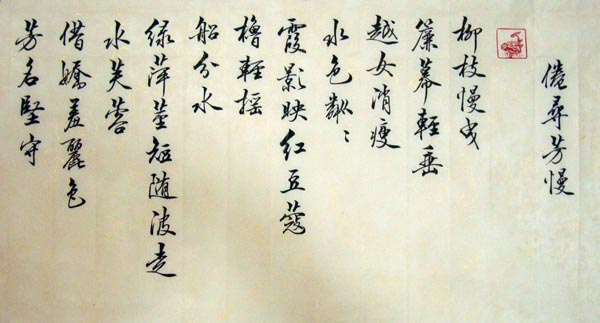 倦尋芳慢
柳枝慢曳
簾幕輕垂
越女消瘦
水色粼〻
霞影映红豆蔻
櫓輕摇
船分水
绿萍茎短随波走
水芙蓉
借嬌羞麗色
芳名堅守